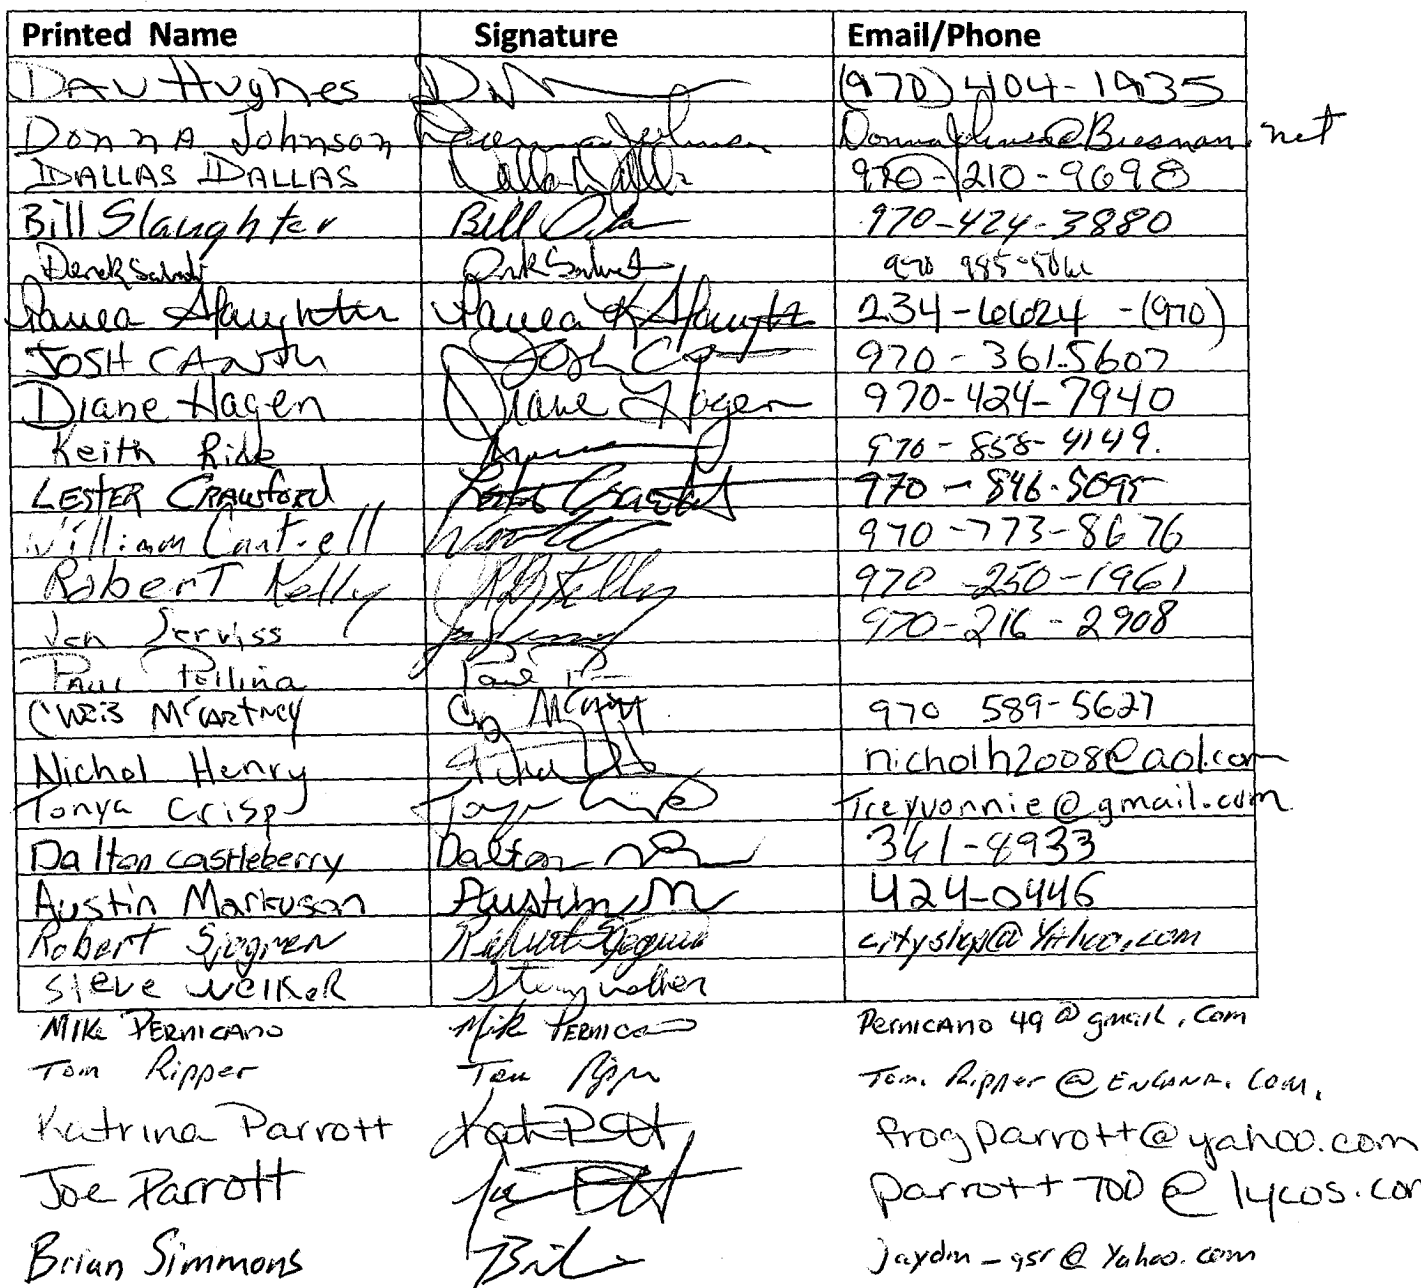 Printed Name Signature Email/Phone
Dav Hughes (970) 404-1935
Donna Johnson Donna Johnson DonnaJohnson@Bresnan.net
DALLAS DALLAS Dallas Dallas 970-210-9698
Bill Slaughter Bill 970-424-3880
Derek 970 985-
Slaughter Slaughter 234-6624 -(970)
JOSH Josh 970-361-5607
Diane Hagen Diane Hagen 970-424-7940
Keith 970-858-4149.
LESTER CRAWFORD Lester Crawford 970-846-5095
William Cantrell 970-773-8676
Robert Kelly Kelly 970-250-1961
Jen Serviss 970-216-2908
Paul Pellina Paul P
Chris McCartney 970 589-5627
Nichol Henry nicholh2008@aol.com
Tonya Crisp Treyvonnie@gmail.com
Dalton Castleberry Dalton 361-8933
Austin Markuson Austin M 424-0446
Robert Sjogren Robert Sjogren cityshop@Yahoo.com
Steve Welker
MIKE PERNICANO Mike PERNICANO PERNICANO 49@gmail.com
Tom Ripper Tom Ripper Tom.Ripper@ENCANA.COM.
Katrina Parrott frogparrott@yahoo.com
Joe Parrott Joe parrott700@lycos.co
Brian Simmons jaydin_gsr@Yahoo.com